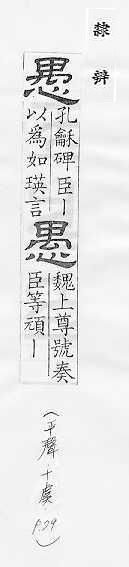 隸辨
愚
孔龢碑臣丨
以為如瑛言
愚
魏上尊號奏
臣等頑丨
(平聲·十虞·P.29)